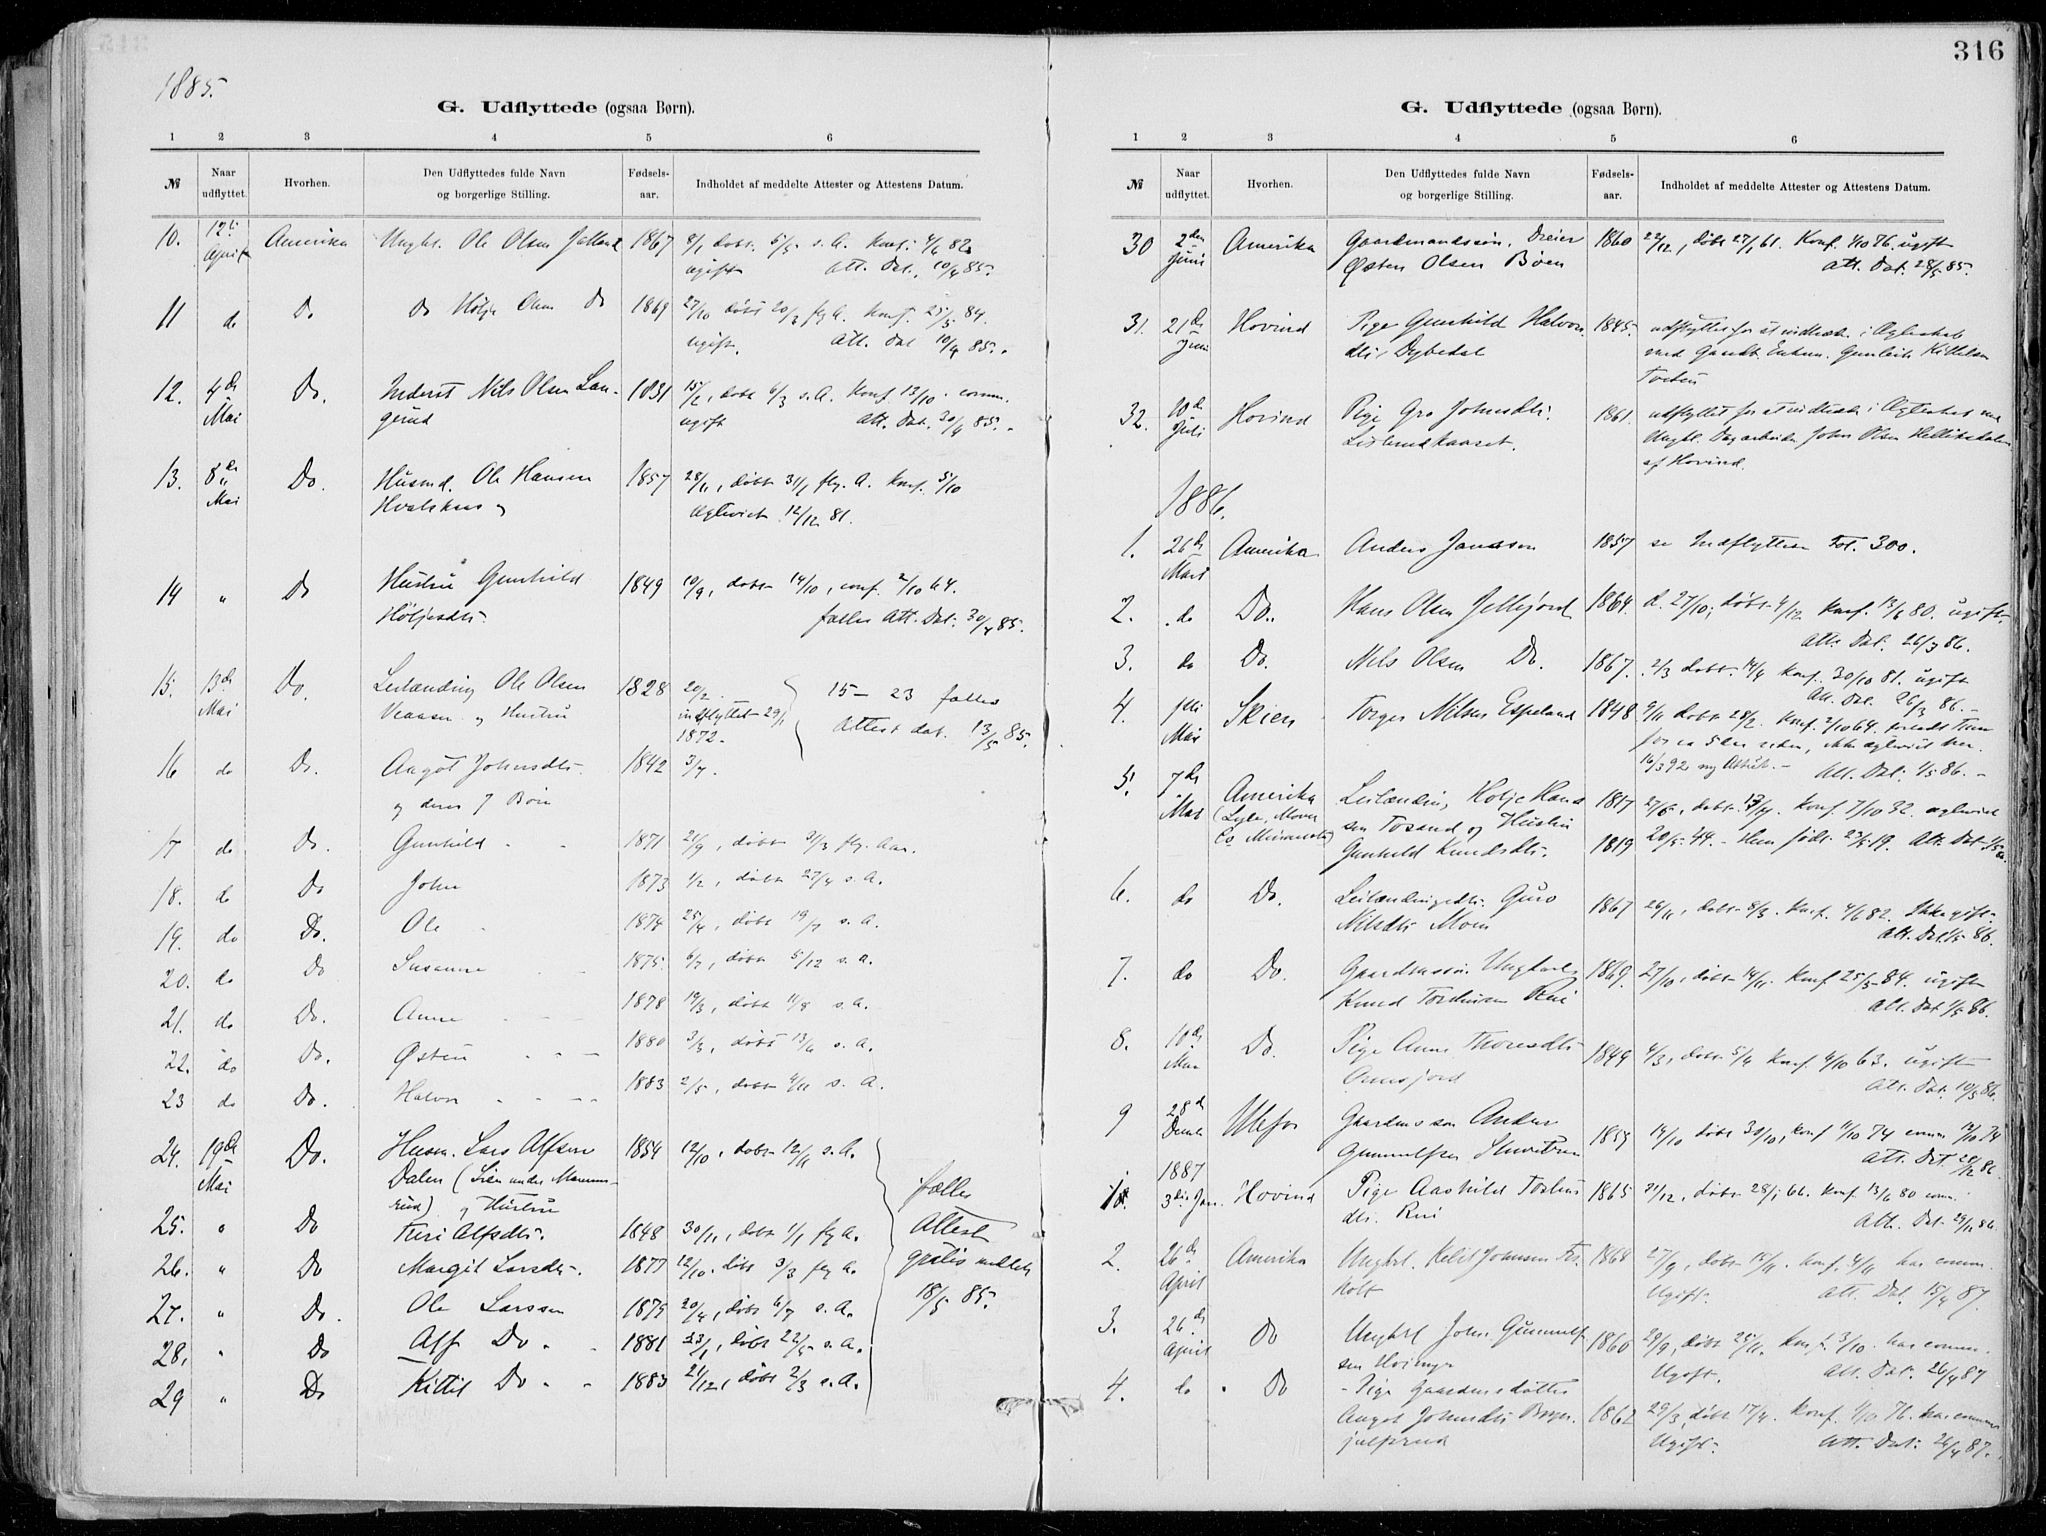 1885.
G. Udflyttede (ogsaa Børn).
1 2 3 4 5 6
№ Naar udflyttet. Hvorhen. Den Udflyttedes fulde Navn og borgerlige Stilling. Fødsels-aar. Indholdet af meddelte Attester og Attestens Datum.
10. 12te April Amerika Ungk. Ole Olsen 1867 8/1 døbt 5/5 s. A. Konf. 4/6 82
ugift Att. Dat. 10/4 85.
11 do Do Do Høljе Olsen Do 1869 27/10 døbt 20/3 flg A. Konf. 25/5 84.
ugift. Att. Dat 10/4 85.
12. 4de Mai Do. Inderst Nils Olsen Lan- 1831 15/2, døbt 6/3 s. A. Konf 13/10 comm.
gerud ugift Att. Dat. 30/4 85.
13. 8de Mai Do. Husmd. Ole Hansen 1857 28/11, døbt 31/1 flg. A. Konf. 5/10
og Ægteviet 12/12 81.
14 " Do Hustru Gunhild 1849 10/9, døbt 14/10, conf. 2/10 64.
Høljesdtr. fælles Att. Dat: 30/4 85.
15. 13de Mai Do. Leilænding Ole Olsen 1828 20/2. 15 — 23 fælles
og Hustru indflyttet 29/1 Attest dat. 13/5 85.
1872.
16 do Do. Angot Johnsdtr. 1842 3/7.
og deres 7 Børn
17 do Do. Gunhild 1871 21/9, døbt 31/3 flg. Aar.
18. do Do John 1873 1/2, døbt 27/4 s. A.
19. do Do. Ole 1874 25/4, døbt 19/7 s. A.
20. do Do Susanne 1875. 6/7, døbt 5/12 s. A.
21. do Do. Anne 1878 19/3, døbt 11/8 s. A.
22. do Do. Østen 1880 3/3, døbt 13/6 s. A.
23 do Do. Halvor 1883 2/5, døbt 4/11 s. A.
24. 19de Mai Do. Husm. Lars Alfsen 1854 12/10, døbt 12/11 s. A.
Dalen ( under
rud) og Hustru fælles
25. " Do Turi Alfsdtr. 1848 30/11, døbt 1/1 flg A. Attest
26. " Do Margit Larsdtr. 1877 22/10. døbt 3/3 flg A. gratis meddelt
27. " Do. Ole Larssen 1879 20/4, døbt 6/7 s. A. 18/5 85.
28. " Do Alf Do 1881 23/1, døbt 22/5 s. A.
29 " Do Kittil Do 1883 21/12, døbt 2/3 s. A.
316
G. Udflyttede (ogsaa Børn).
1 2 3 4 5 6
№ Naar udflyttet. Hvorhen. Den Udflyttedes fulde Navn og borgerlige Stilling. Fødsels-aar. Indholdet af meddelte Attester og Attestens Datum.
30 2den Juni Amerika Gaardmandssøn, Dreier 1860 22/12, døbt 27/1 61. Konf. 1/10 76. ugift
Østen Olsen Bøen Att. Dat. 28/5 85.
31. 21de Juni Hovind Pige Gunhild Halvors- 1845. udflyttet for at indtræde i Ægteskab
dtr. Dybedal med Gaardbr. Enkem. Gunleik Kittelsen
32. 10de Juli Hovind Pige Gro Johnsdtr. 1861. udflyttet for at indtræde i Ægteskab med
Ungk. Dagarbeider John Olsen
af Hovind.
1886.
1. 26de Marts Amerika Anders Janssen 1857 se Indflyttede Fol. 300.
2. do Do. Hans Olsen 1864. d. 27/10, døbt 4/12 Konf. 13/6 80. ugift.
Att. Dat. 26/3 86.
3. do Do. Nils Olsen Do. 1867. 2/3 døbt 14/4 Konf. 30/10 81. ugift
Att. Dat. 26/3 86.
4. 1ste Mai Skien Torger Nilsen Espeland 1848 9/11 døbt 28/2. Konf. 2/10 64. forlods Tinn
for ca 5 Aar siden, ikke ægteviet her.
16/3 92 ny Attest. Att. Dat. 1/5 86.
5. 7de Mai Amerika Leilænding Høljе Hans- 1817 27/6, døbt 13/7. Konf. 7/10 32. ægteviet
(Lyle, Mower Co Minnesota) sen Tosand og Hustru
Gunhild Knudsdtr. 1819 20/5 44. Hun født 23/5 19. Att. Dat
6. do Do. Leilændingsdtr. Guro 1867 26/11, døbt 8/3. Konf. 4/6 82. Ikke gift.
Nilsdtr Moen Att. Dat. 1/5 86.
7. do Do. Gaardmssøn Ungkarl 1869. 27/10, døbt 14/11. Konf 25/5 84. ugift
Knud Rui Att. Dat 1/5 86.
8. 10de Mai Do. Pige Anne Thoresdtr 1849 4/3, døbt 5/4 Konf. 4/10 63. ugift
Att. Dat. 10/5 86.
9 28de Decemb Ulefos Gaardmssøn Ander 1859 14/10 døbt 30/10, Konf 11/10 74 comm 12/10 74
Gunnulfsen Att. Dat 28/12 86
1887
1. 3die Jan. Hovind Pige Aashild Tostens- 1865 21/12, døbt 28/1 66. Konf. 13/6 80 comm.
dtr. Rui Att. Dat 29/12 86.
2. 26de April Amerika Ungkl. Ketil Johnsen 1868 27/9, døbt 15/11. Konf. 4/11 har comm.
holt Ugift. Att. Dat. 15/4 87.
3. 26de April Do Ungkl John Gunnulf- 1860 29/9, døbt 25/11. Konf. 3/10. har comm.
sen Ugift. Att. Dat. 26/4 87
4. do Do Pige Gaardmsdatter
Angot Johnsdtr 1862 29/3, døbt 17/4. Konf. 1/10 76. har comm.
Ugift. Att. Dat: 26/4 87.